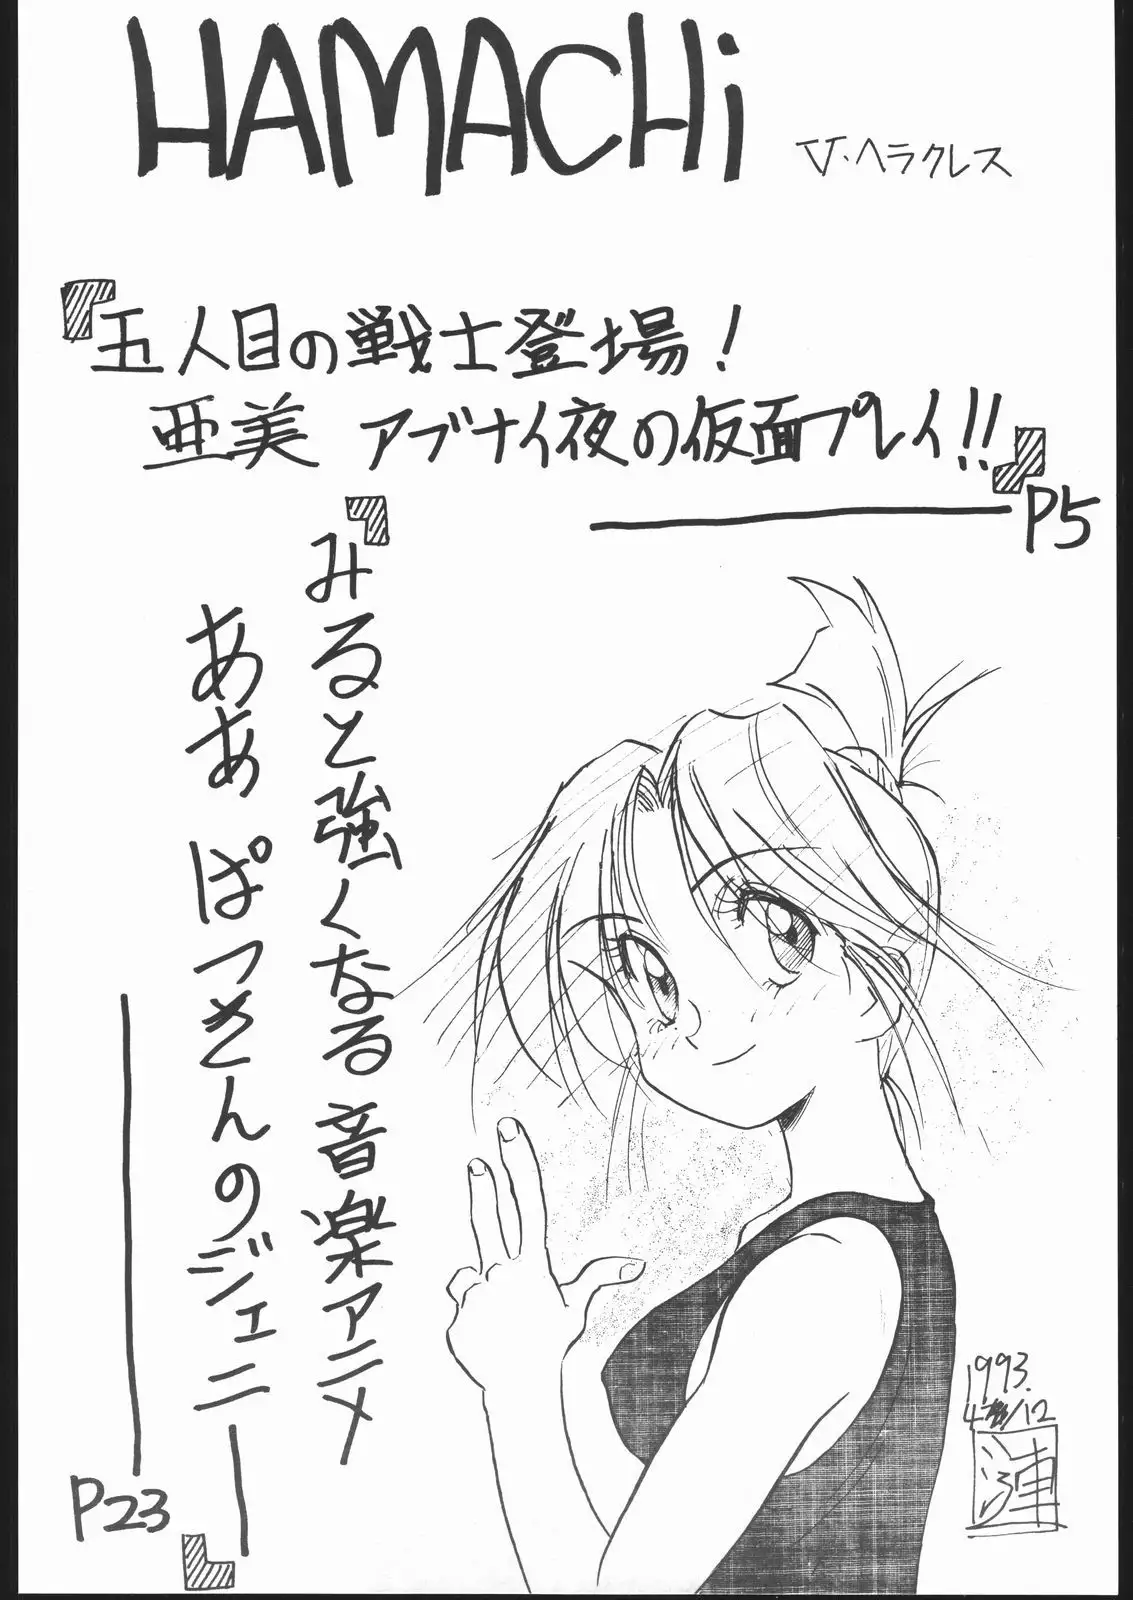 HAMACHi
V・ヘラクレス
『五人目の戦士登場！
亜美 アブナイ夜の仮面プレイ!!』
P5
『みると強くなる音楽アニメ
ああ ぱっさんのジェニー』
P23
1993.
漣